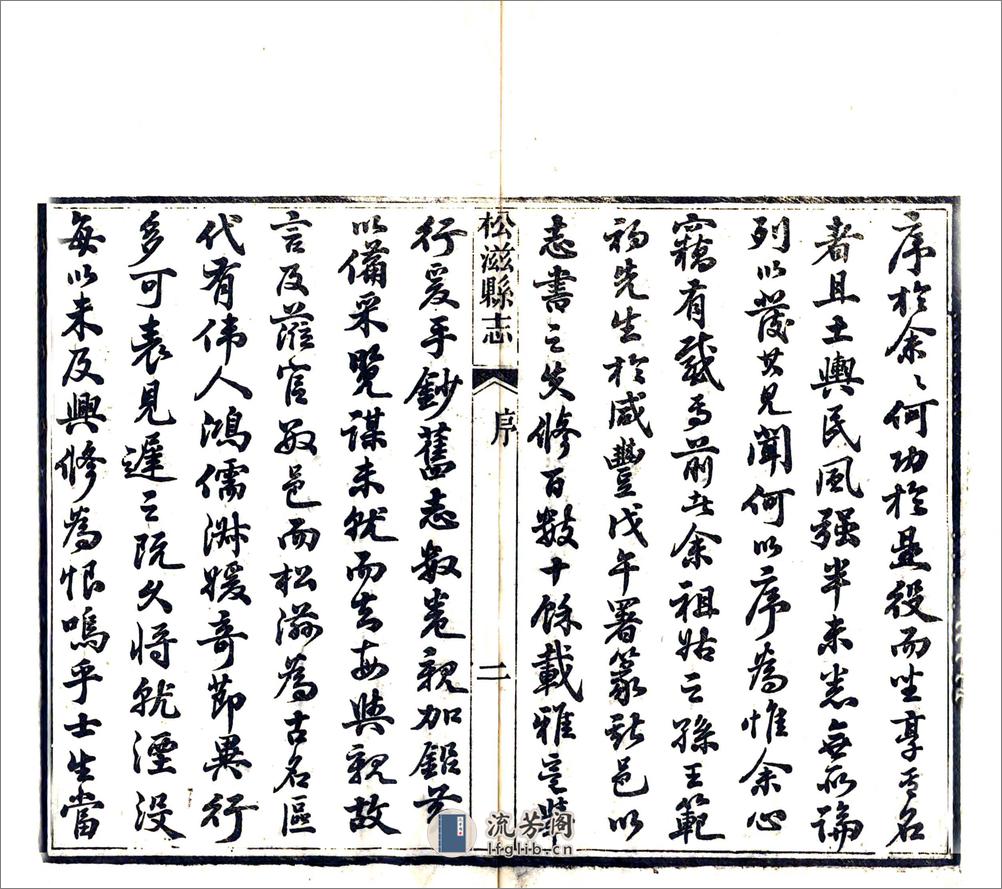 序於余〻何功於是役而坐享其名
者且土輿民風强半未悉無所論
列以發其見聞何以序為惟余心
竊有感焉前此余祖姑之孫王範
初先生於咸豐戊午署篆茲邑以
志書之失修百數十餘載雅意
行爰手鈔舊志數卷親加鉛
以備采覽謀未就而去每與親故
言及蒞官敝邑而松滋為古名區
代有偉人鴻儒淑媛奇節異行
多可表見遲之既久將就湮沒
每以未及興修為恨嗚乎士生當
松滋縣志
序
二
流芳阁
lfglib.cn